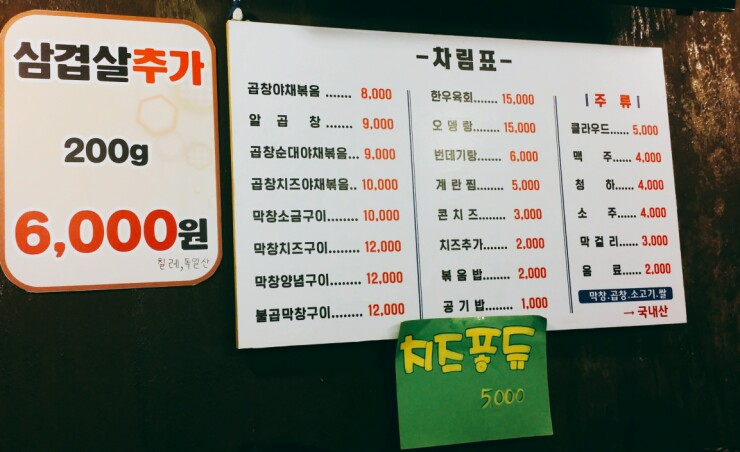 삼겹살추가
200g
6,000원
칠레,독일산
-차림표-
곱창야채볶음 ....... 8,000
알 곱 창 ........ 9,000
곱창순대야채볶음... 9,000
곱창치즈야채볶음.. 10,000
막창소금구이....... 10,000
막창치즈구이....... 12,000
막창양념구이....... 12,000
불곱막창구이........ 12,000
한우육회....... 15,000
오 뎅 랑....... 15,000
번데기랑........ 6,000
계 란 찜........ 5,000
콘 치 즈........ 3,000
치즈추가........ 2,000
볶 음 밥........ 2,000
공 기 밥........ 1,000
| 주 류 |
클라우드...... 5,000
맥 주...... 4,000
청 하...... 4,000
소 주...... 4,000
막 걸 리...... 3,000
음 료...... 2,000
막창.곱창.소고기.쌀
→ 국내산
치즈퐁듀
5,000